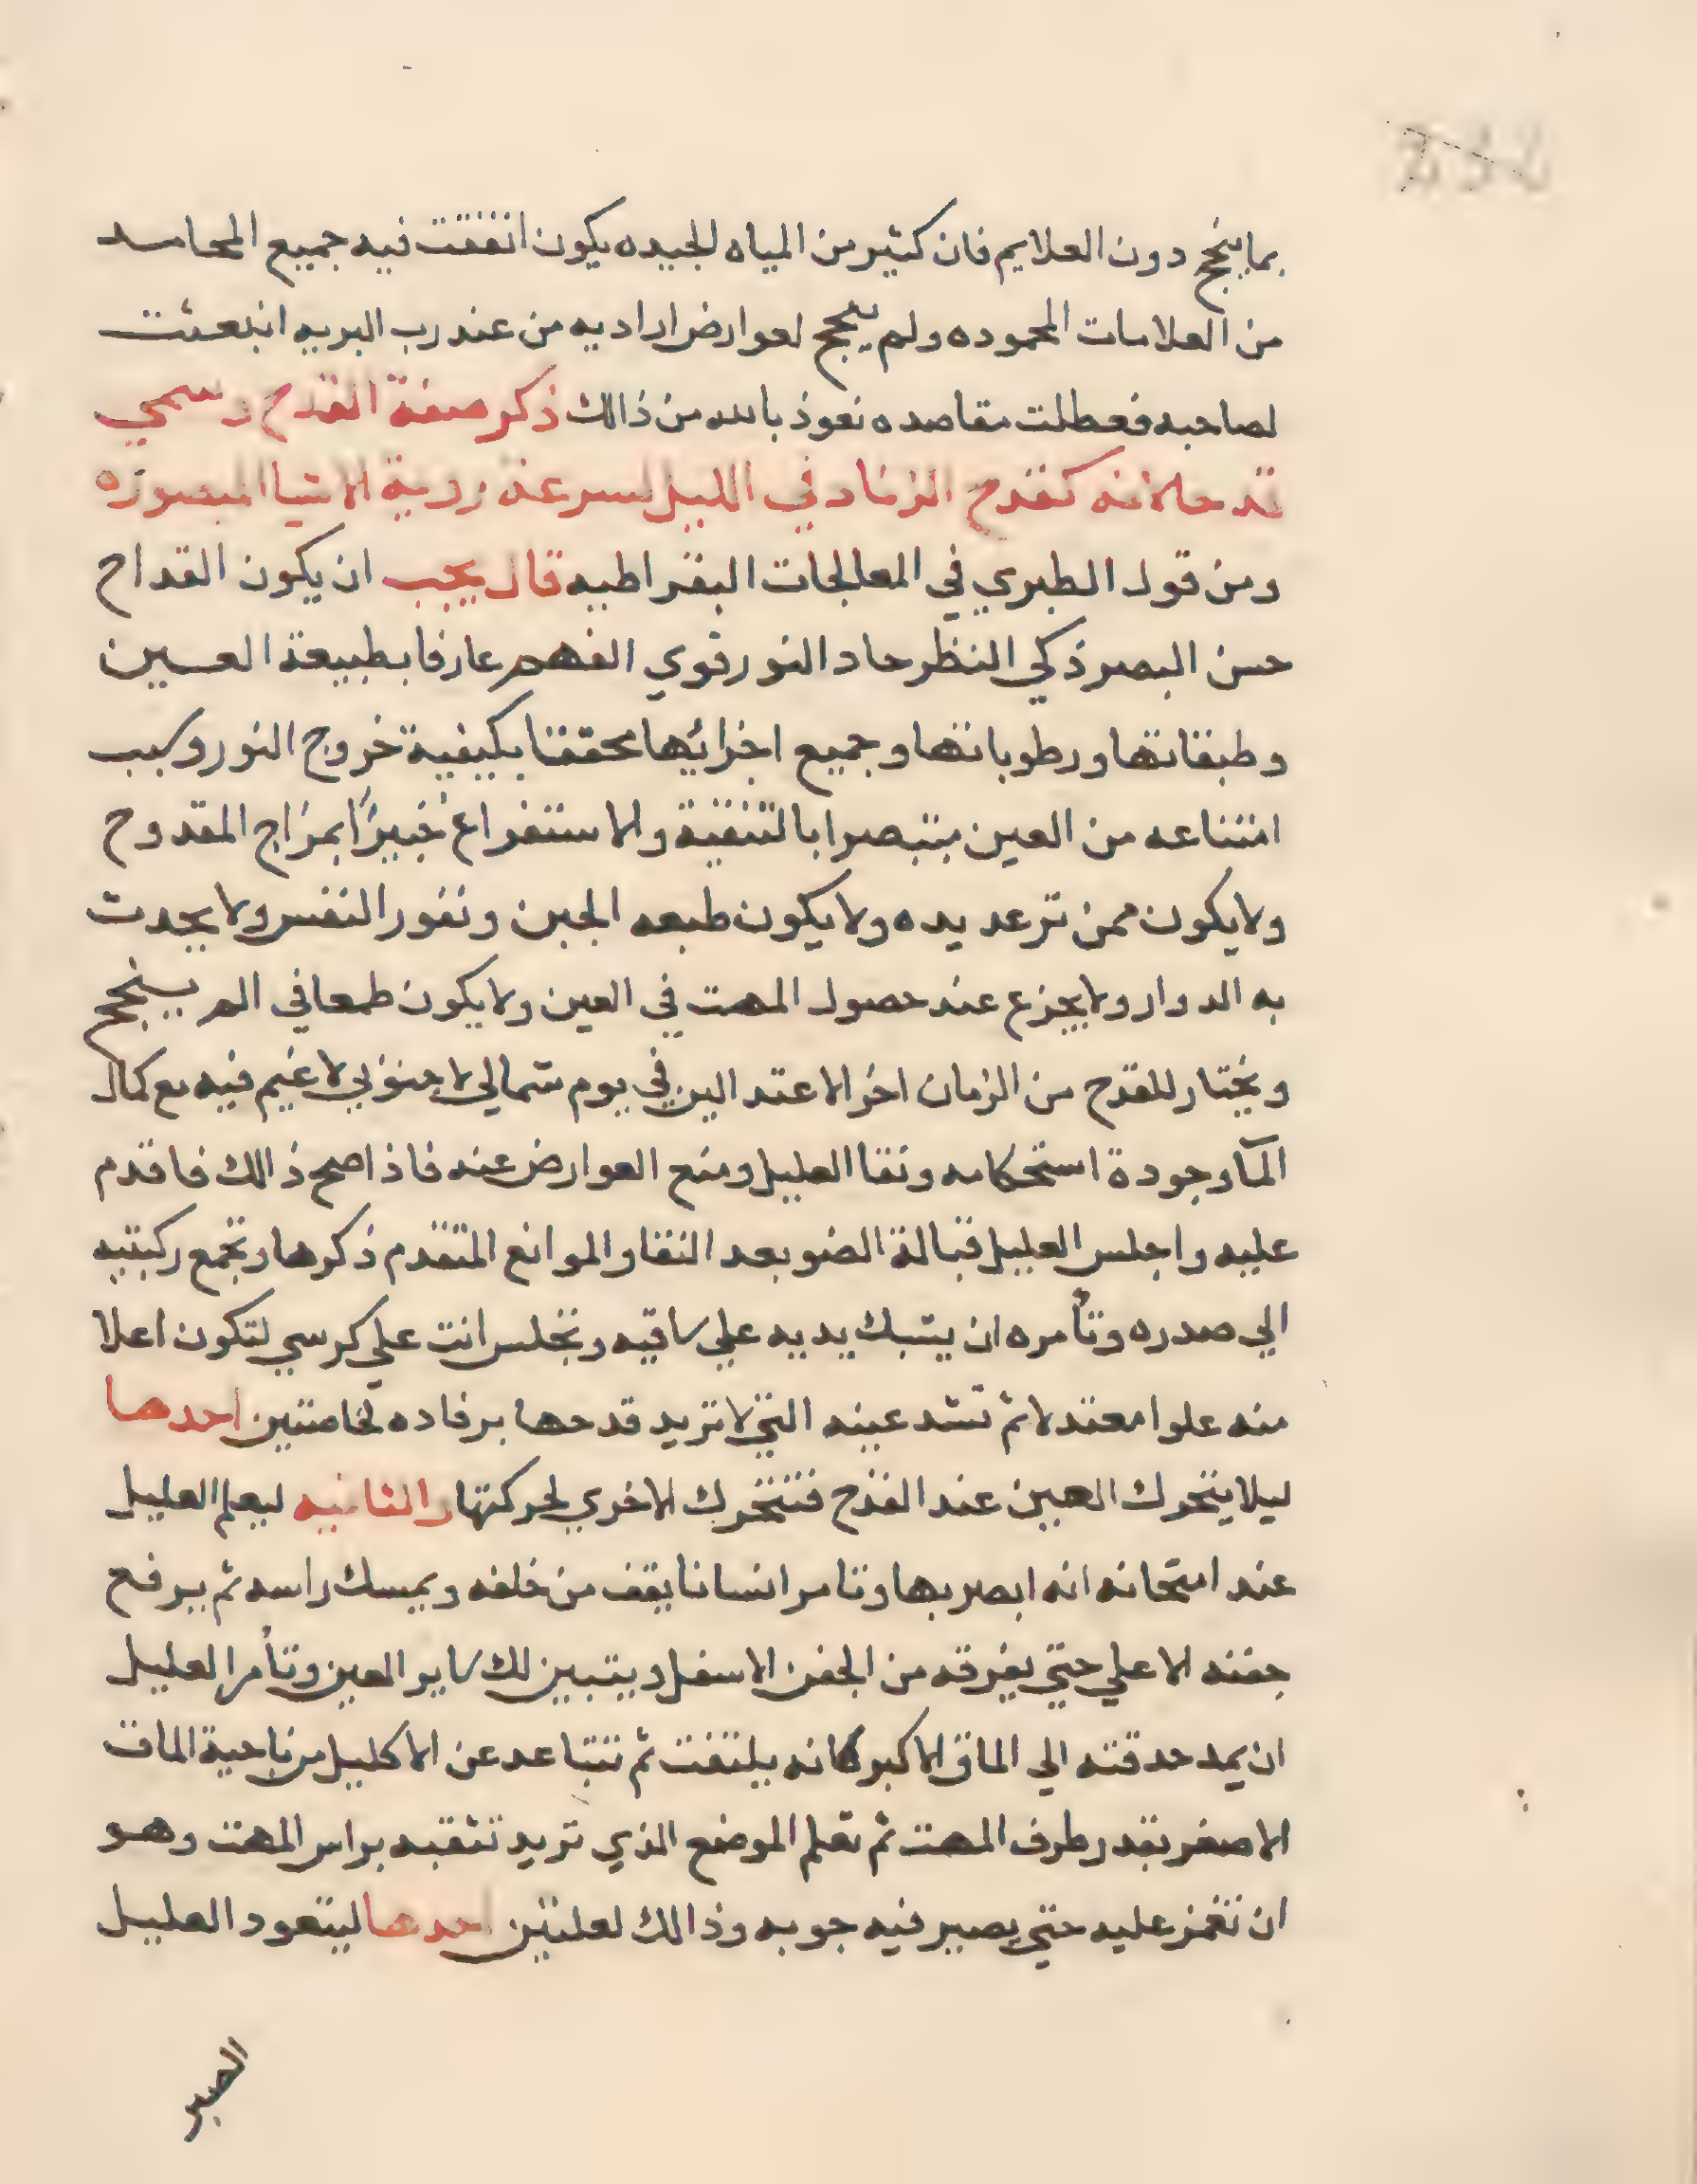 بما ينجح دون العلايم فان كثير من المياه الجيده يكون اتفقت فيه جميع المحامد
من العلامات المحموده ولم ينجح لعوارض اراديه من عند رب البريه انبعثت
لصاحبه فعطلت مقاصده نعوذ بالله من ذالك ذكر صفة القدح وسمي
قدحا لانه كقدح الزناد في الليل لسرعة روية الاشيا المبصوره
ومن قول الطبري في المعالجات البقراطيه قال يجب ان يكون القداح
حسن البصر ذكي النظر حاد النور قوي الفهم عارفا بطبيعة العين
وطبقاتها ورطوباتها وجميع اجزائها محققا بكيفية خروج النور وسبب
امتناعه من العين متبصرا بالتنقية والاستفراغ خبيرًا بمزاج المقدوح
ولا يكون ممن ترعد يده ولا يكون طبعه الجبن ونفور النفس ولا يحدث
به الدوار ولا يجزع عند حصول المهت في العين ولا يكون طمعا في الم ينجح
ويختار للقدح من الزمان اخر الاعتدالين في يوم شمالي لا جنوبي لا غيم فيه مع كمال
المآ وجودة استحكامه ونقا العليل ومنع العوارض عنه فاذا صح ذالك فاقدم
عليه واجلس العليل قبالة الضو بعد النقا والموانع المتقدم ذكرها وتجمع ركبتيه
الي صدره وتأمره ان يشبك يديه علي ساقيه وتجلس انت علي كرسي لتكون اعلا
منه علوا معتدلا ثم تشد عينه التي لا تريد قدحها برفاده لخاصتين احدها
ليلا يتحرك العين عند القدح فتتحرك الاخري لحركتها والثانيه ليعلم العليل
عند امتحانه انه ابصر بها وتامر انسانا يقف من خلفه ويمسك راسه ثم يرفع
جفنه الاعلي حتي يفرقه من الجفن الاسفل ويتبين لك ساير العين وتأمر العليل
ان يمد حدقته الي الماق الاكبر كانه يلتفت ثم تتباعد عن الاكليل من ناحية الماق
الاصغر بقدر طرف المهت ثم تعلم الموضع الذي تريد تثقبه براس المهت وهو
ان تغمز عليه حتي يصير فيه جوبه وذالك لعلتين احدها ليتعود العليل
الصبر